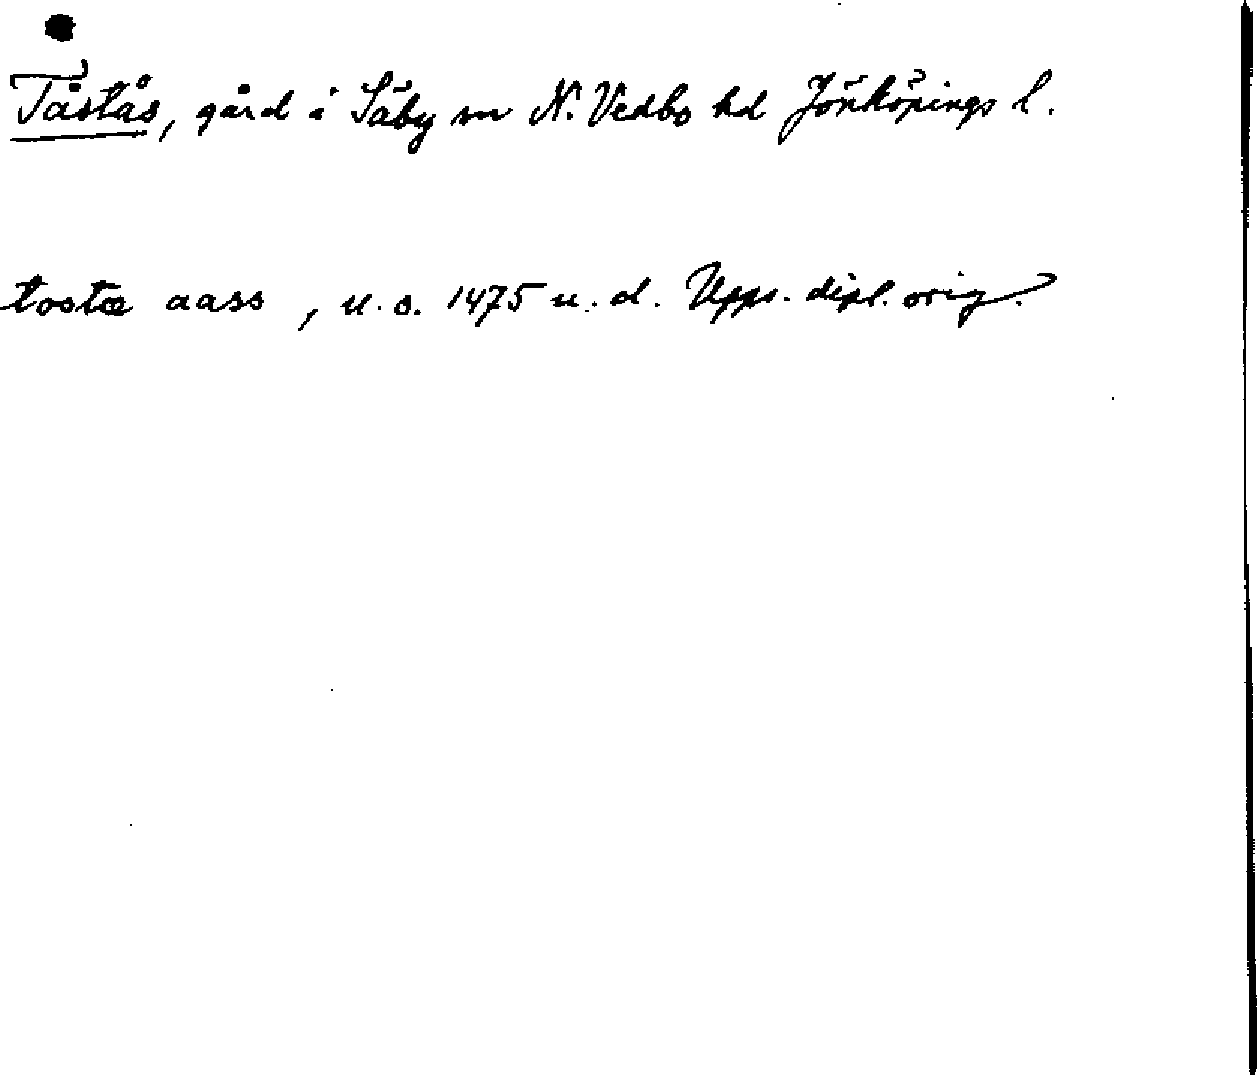 Tåstås, gård i Säby sn N. Vedbo hd Jönköpings l.
tostæ aass, u.o. 1475 u.d. Upps. dipl. orig.